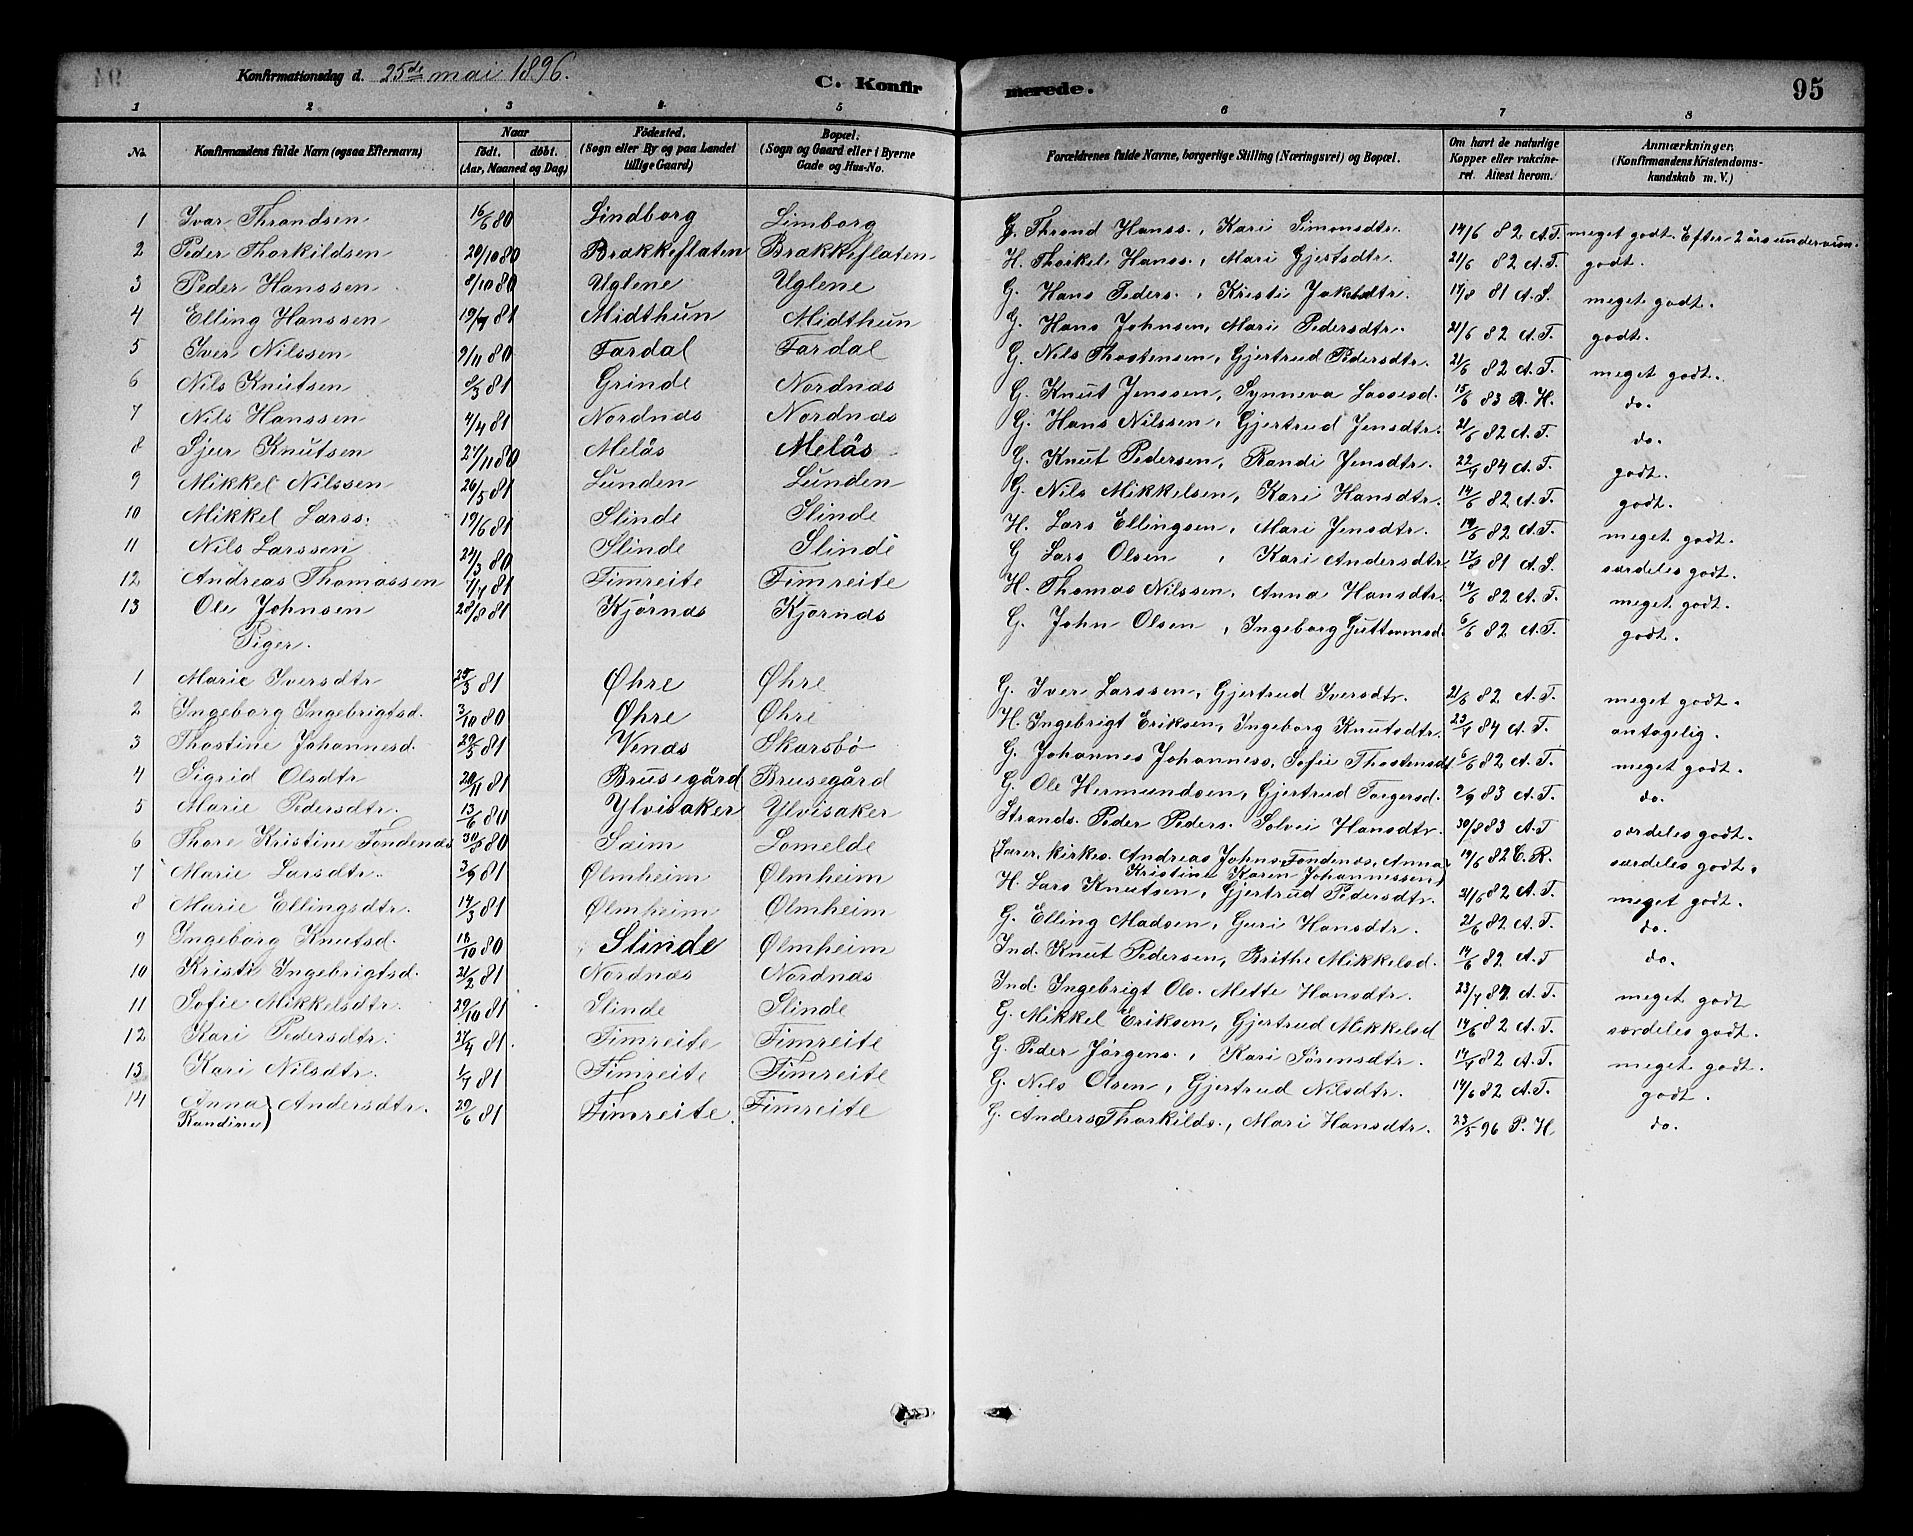 Konfirmationsdag d. 25de mai 1896. C. Konfirmerede. 95
1 2 3 4 5 6 7 8
No. Konfirmandens fulde Navn (ogsaa Efternavn) Naar født. døbt. (Aar, Maaned og Dag) Fødested. (Sogn eller By og paa Landet tillige Gaard) Bopæl. (Sogn og Gaard eller i Byerne Gade og Hus-No. Forældrenes fulde Navne, borgerlige Stilling (Næringsvei) og Bopæl. Om havt de naturlige Kopper eller vakcineret. Attest herom. Anmærkninger. (Konfirmandens Kristendomskundskab m. V.)
1 Ivar Throndsen 16/6 80 Lindborg Limborg G. Thrond Hanss., Kari Simonsdtr. 14/6 82 A.T. meget godt. Efter 2 års undervisn.
2 Peder Thorkildsen 20/10 80 Brækkeflaten Brækkeflaten H. Thorkel Hanss., Mari Gjestsdtr. 21/6 82 A.T. godt.
3 Peder Hanssen 8/10 80 Uglene Uglene G. Hans Peders., Kristi Jakobsdtr. 17/8 81 A.S. meget godt.
4 Elling Hanssen 19/7 81 Midthun Midthun G. Hans Johnsen, Mari Pedersdtr. 21/6 82 A.T. godt.
5 Iver Nilssen 9/11 80 Fardal Fardal G. Nils Thostensen, Gjertrud Pedersdtr. 21/6 82 A.T. meget godt.
6 Nils Knutsen 8/3 81 Grinde Nordnæs G. Knut Jenssen, Synneva Lassesd. 15/6 83 A.H. do.
7 Nils Hanssen 4/4 81 Nordnæs Nordnæs G. Hans Nilssen, Gjertrud Jensdtr. 21/6 82 A.T. do.
8 Sjur Knutsen 27/11 80 Melås Melås G. Knut Pedersen, Randi Jensdtr. 22/7 84 A.T. godt.
9 Mikkel Nilssen 26/5 81 Lunden Lunden G. Nils Mikkelsen, Kari Hansdtr. 14/6 82 A.T. godt.
10 Mikkel Larss. 19/6 81 Slinde Slinde H. Lars Ellingsen, Mari Jensdtr. 14/6 82 A.T. meget godt.
11 Nils Larssen 24/3 80 Slinde Slinde G Lars Olsen, Kari Andersdtr. 17/8 81 A.S. særdeles godt.
12 Andreas Thomassen 7/7 81 Fimreite Fimreite H. Thomas Nilssen, Anna Hansdtr. 14/6 82 A.T. meget godt.
13 Ole Johnsen 28/8 81 Kjørnæs Kjørnæs G. John Olsen, Ingeborg Guttormsd. 6/6 82 A.T. godt.
Piger.
1 Marie Iversdtr 25/3 81 Øhre Øhre G. Iver Larssen, Gjertrud Iversdtr. 21/6 82 A.T. meget godt.
2 Ingeborg Ingebrigtsd. 3/10 80 Øhre Øhre H. Ingebrigt Eriksen, Ingeborg Knutsdtr. 23/7 84 A.T. antagelig.
3 Thostine Johannesd. 29/5 81 Venæs Skarsbø G. Johannes Johanness, Sofie Thostensdt. 6/6 82 A.T. meget godt.
4 Sigrid Olsdtr 20/11 81 Brusegård Brusegård G. Ole Hermundsen, Gjertrud Torgersd. 2/9 83 A.T. do.
5 Marie Pedersdtr. 13/6 80 Ylvisaker Ylvisaker Strands. Peder Peders. Solvei Hansdtr. 30/8 83 A.T særdeles godt.
6 Thore Kristine Fondenæs 30/5 80 Saim Lomelde (Lærer, kirkes. Andreas Johns. Fondenæs, Anna
Kristine Karen Johannessen) 19/6 82 C.R. særdeles godt.
7 Marie Larsdtr. 3/9 81 Ølmheim Ølmheim H. Lars Knutsen, Gjertrud Pedersdtr. 21/6 82 A.T. meget godt.
8 Marie Ellingsdtr. 14/3 81 Ølmheim Ølmheim G. Elling Madsen, Guri Hansdtr. 21/6 82 A.T. do.
9 Ingeborg Knutsd. 18/10 80 Slinde Ølmheim Ind. Knut Pedersen, Brithe Mikkelsd. 14/6 82 A.T do.
10 Kristi Ingebrigtsd. 21/2 81 Nordnæs Nordnæs Ind. Ingebrigt Ols. Mette Hansdtr. 23/7 84 A.T. meget godt
11 Sofie Mikkelsdtr. 29/10 81 Slinde Slinde G. Mikkel Eriksen, Gjertrud Mikkelsd 14/6 82 A.T. særdeles godt.
12 Kari Pedersdtr. 27/4 81 Fimreite Fimreite G. Peder Jørgens., Kari Sørensdtr. 14/7 82 A.T. meget godt.
13 Kari Nilsdtr. 1/7 81 Fimreite Fimreite G. Nils Olsen, Gjertrud Nilsdtr. 14/6 82 A.T. godt.
14 Anna Randine) Andersdtr. 29/6 81 Fimreite. Fimreite G. Anders Thorkilds., Mari Hansdtr. 23/5 96 P.H. do.